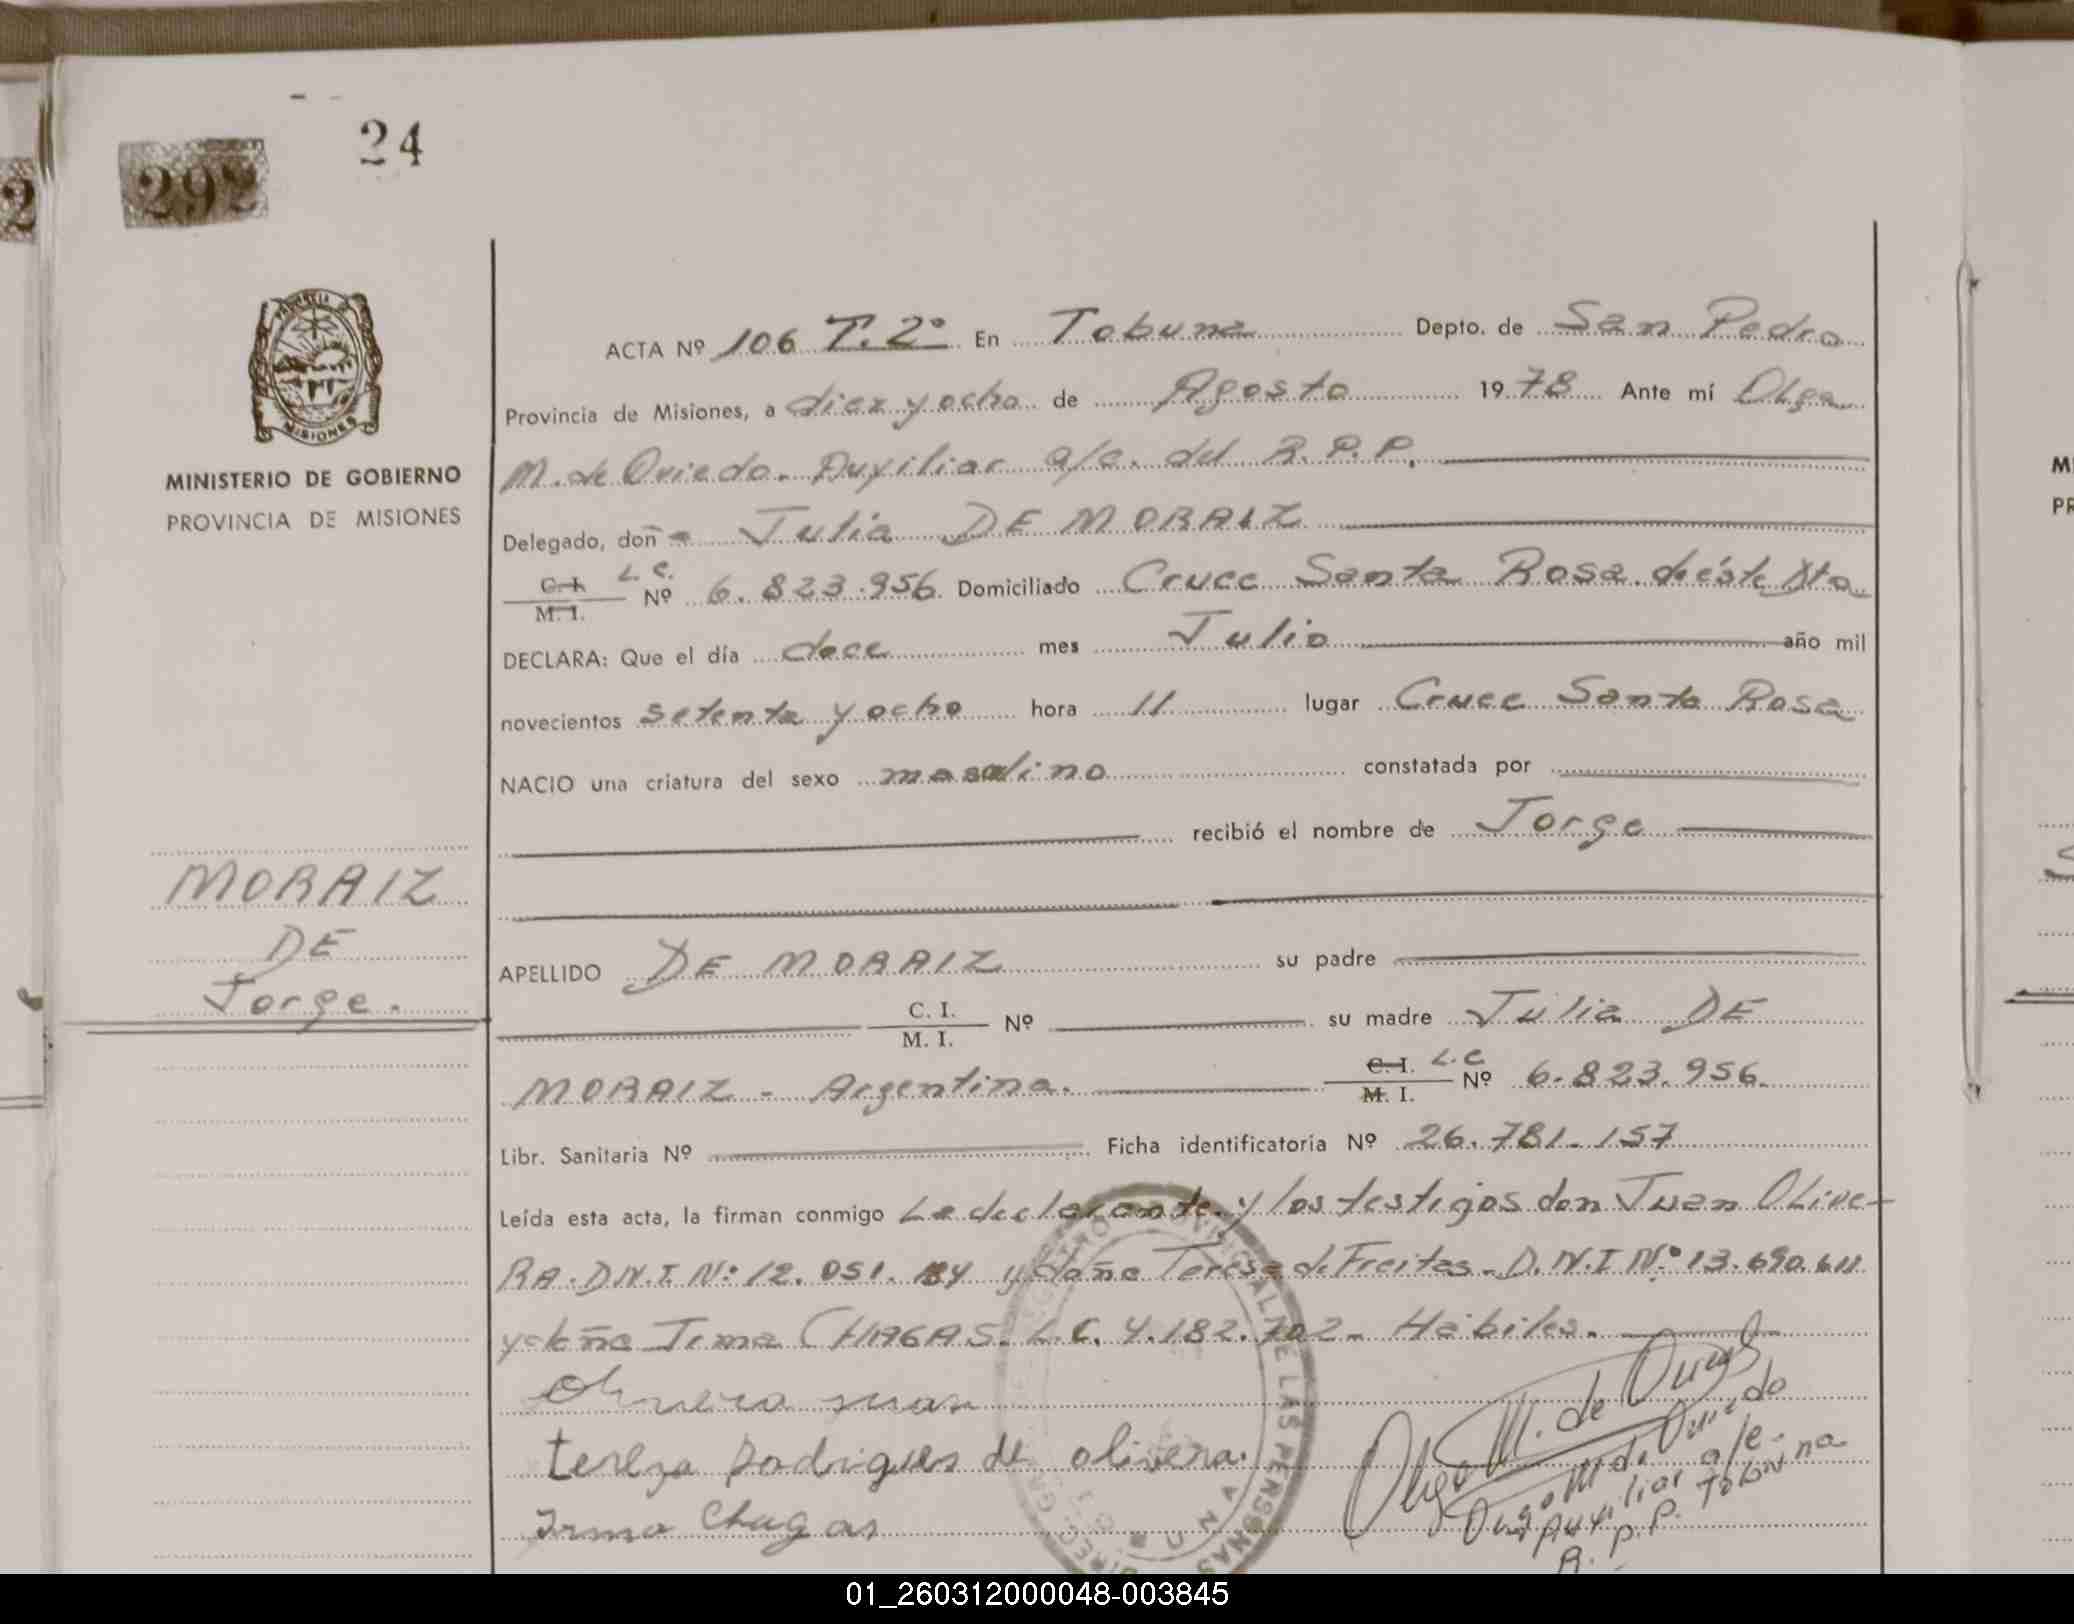 24
292
ACTA Nº 106 T. 2º En Tobuna Depto. de San Pedro
Provincia de Misiones, a diez y ocho de Agosto 1978 Ante mí Olga
M. de Oviedo. Auxiliar a/c. del R. P. P.
MINISTERIO DE GOBIERNO
PROVINCIA DE MISIONES
Delegado, doña Julia DE MORAIZ
C. I. L. C.
M. I. Nº 6.823.956 Domiciliado Cruce Santa Rosa de éste Dto.
DECLARA: Que el día doce mes Julio año mil
novecientos setenta y ocho hora 11 lugar Cruce Santa Rosa
NACIO una criatura del sexo masculino constatada por
recibió el nombre de Jorge
MORAIZ
DE
Jorge.
APELLIDO DE MORAIZ su padre
C. I.
M. I. Nº su madre Julia DE
MORAIZ - Argentina. C. I. L.C
M. I. Nº 6.823.956.
Libr. Sanitaria Nº Ficha identificatoria Nº 26.781.157
Leída esta acta, la firman conmigo La declarante y los testigos don Juan OLIVE-
RA. D.N.I. Nº: 12.051. y doña Teresa de Freitas - D.N.I Nº: 13.690.611
y doña Irma CHAGAS. L.C. 4.182.702 - Hábiles.
Olivera Juan
tereza Rodrigues de olivera.
Irma Chagas
Olga M. de Oviedo
Olga M. de Oviedo
Auxiliar a/c.
R. P. P. Tobuna
MISIONES
01_260312000048-003845